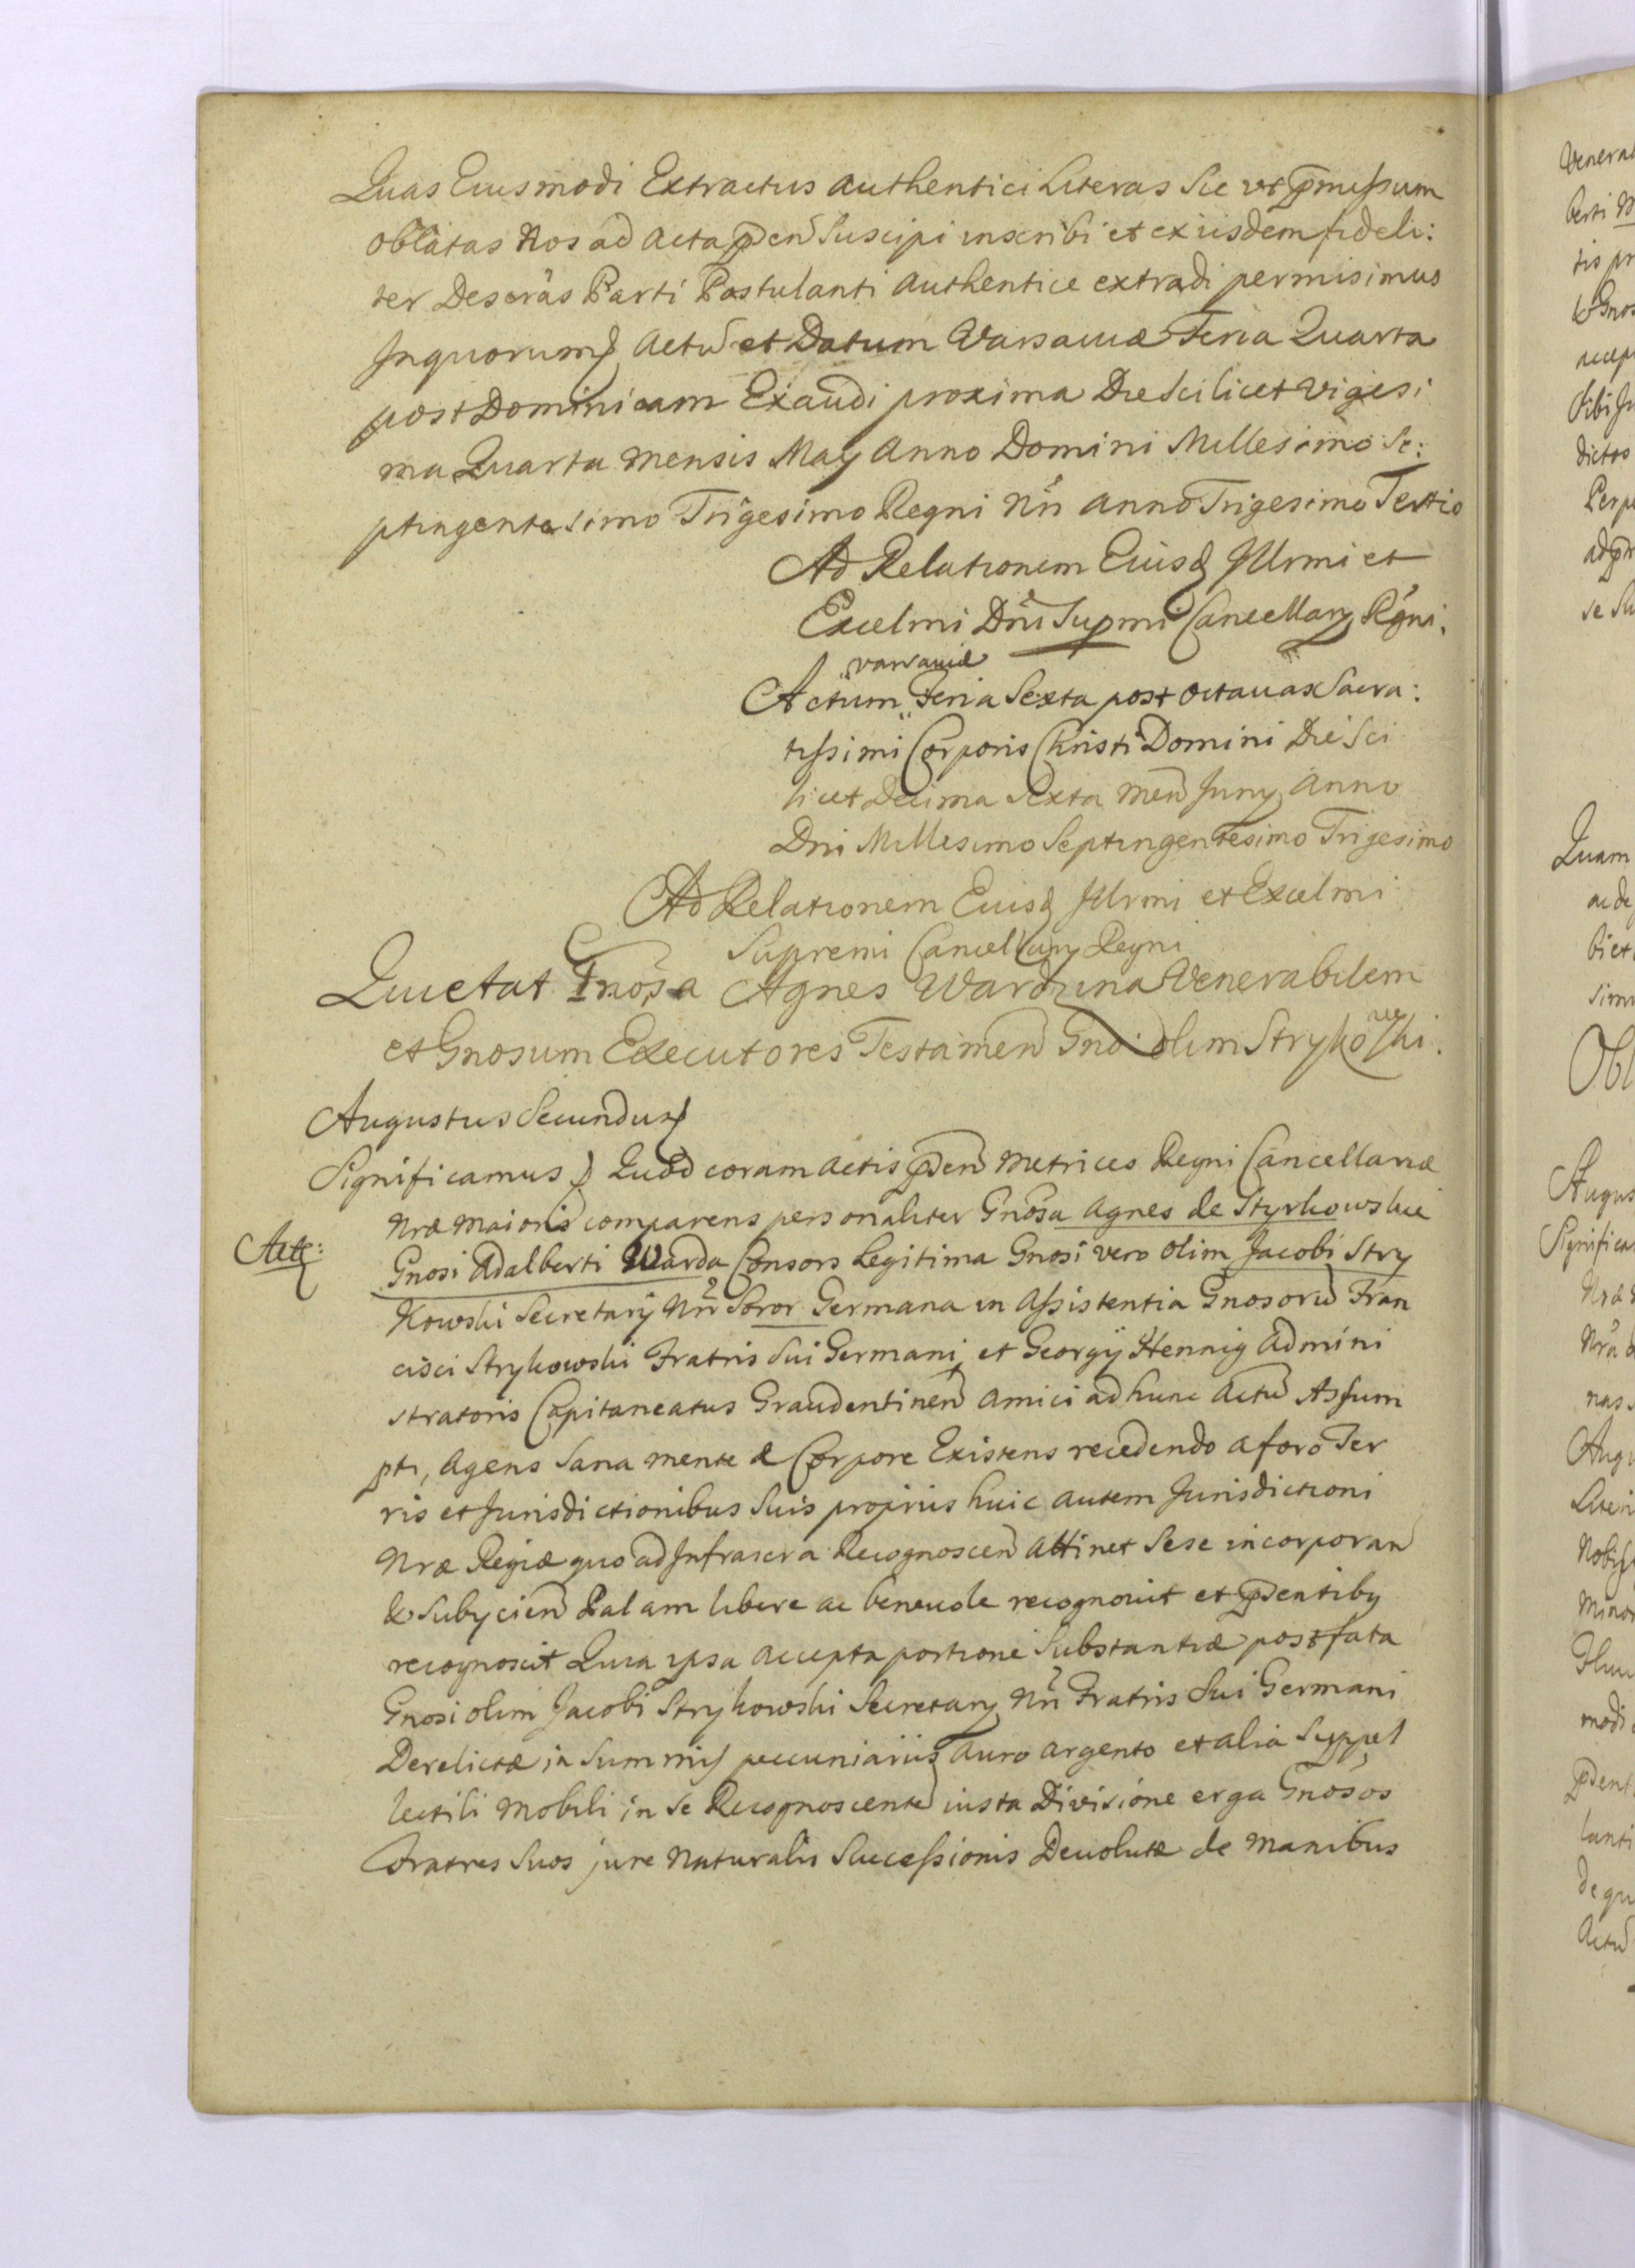 Quas Eiusmodi Extractus authentici Literas Sic vt p̄missum
oblatas Nos ad Acta p̄den̄ Suscipi inscribi et ex iisdem fideli:
ter Descr̄as Parti Postulanti authentice extradi permisimus
Inquorum Actū et Datum Varsaviæ Feria Quarta
post Dominicam Exaudi proxima Die Scilicet vigesi
ma Quarta mensis Maÿ Anno Domini Millesimo Se:
ptingentesimo Trigesimo Regni Nr̄i anno Trigesimo Tertio
Ad Relationem Eiusd Illrmi et
Excelmi Dn̄i Supmi Cancellarÿ Rgni.
varsaviæ
Actum Feria Sexta post octauas Sacra:
tissimi Corporis Christi Domini Die Sci
licet Decima Sexta men̄ Junÿ Anno
Dni Millesimo Septingentesimo Trigesimo
Ad Relationem Eiusd Illrmi et Excelmi
Supremi Cancellarÿ Regni
Quietat Gnosa Agnes Wardzina Venerabilem
et Gnosum Executores Testamen̄ Gnoi olim Strykowski.
Augustus Secundus
Significamus Quod coram Actis p̄den̄ Metrices Regni Cancellariæ
Nræ Maioris comparens personaliter Gnosa Agnes de Styrkowskie
Gnosi Adalberti Warda Consors Legitima Gnosi vero olim Jacobi Stry
kowski Secretarÿ Nr̄i Soror Germana in Assistentia Gnosorū Fran
cisci Strykowski Fratris Sui Germani et Georgÿ Hennig Admini
stratoris Capitaneatus Graudentinen̄ Amici ad hunc Actū Assum
pti, Agens Sana mente & Corpore Existens recedendo a foro Ter
ris et Jurisdictionibus Suis proprius huic autem Jurisdictioni
Nræ Regiæ quo ad Infrascra Recognoscen̄ Attinet Sese incorporan̄
& Subycien̄ Palam libere ac beneuole recognouit et p̄dentiby
recognoscit Quia ipsa accepta portione Substantiæ post fata
Gnosi olim Jacobi Strykowski Secretarÿ Nr̄i Fratris Sui Germani
Derelictæ in Summis pecuniariis auro argento et alia Suppel
lectili Mobili in Se Recognoscente iusta Divisione erga Gnosos
Fratres Suos jure Naturalis Successionis Deuolutæ de Manibus